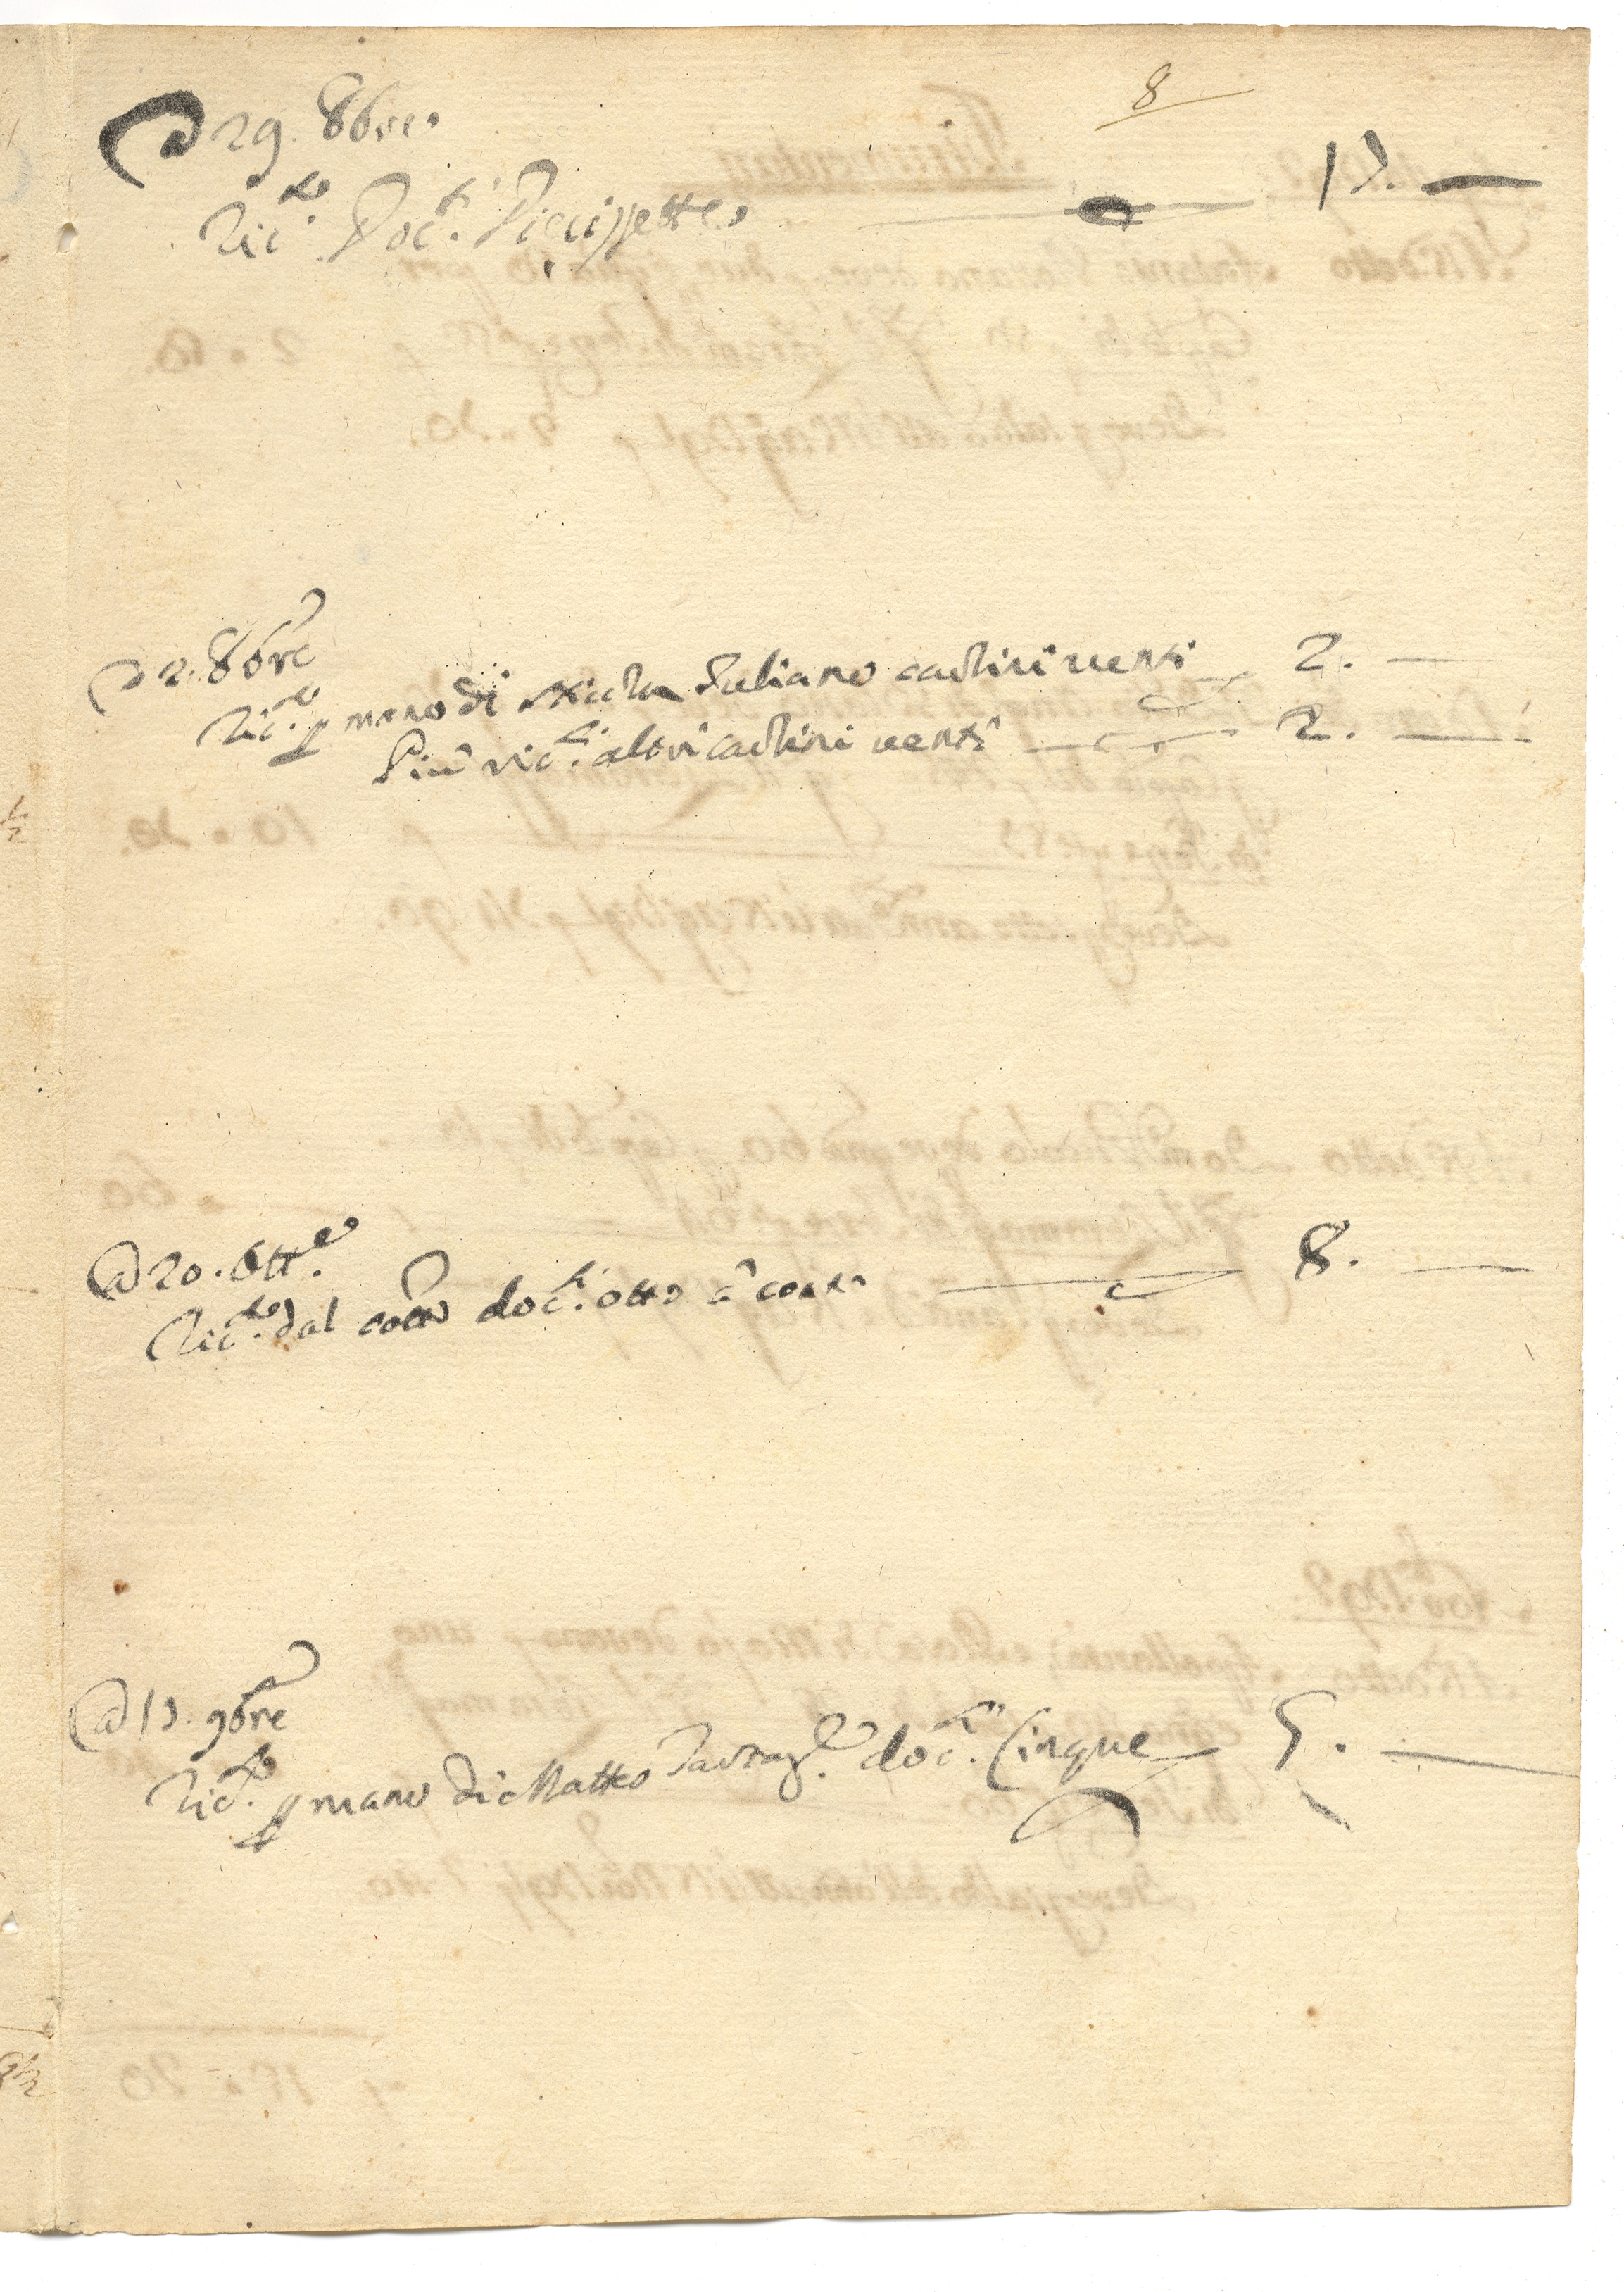 8
@ 29. 8bre
Ric.to Doc.ti Diecissette 17.
@ 2. 8bre
Ric.to p mano di Nicola Juliano carlini venti 2.
Più ric.ti altri carlini venti 2.
@ 20. Ott.e
Ric.to dal doc.ti otto à conto 8.
@ 13. 9bre
Ric.to p mano di Matteo doc.ti Cinque 5.